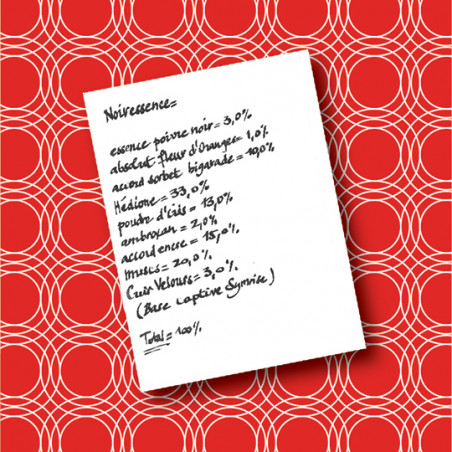 Noiressence=
essence poivre noir = 3,0%
absolut fleur d'Oranger = 1,0%
accord sorbet bigarade = 10,0%
Hédione = 33,0%
poudre d'iris = 13,0%
ambroxan = 2,0%
accord encre = 15,0%
muscs = 20,0%
Cuir Velours = 3,0%
(Base captive Symrise)
Total = 100%